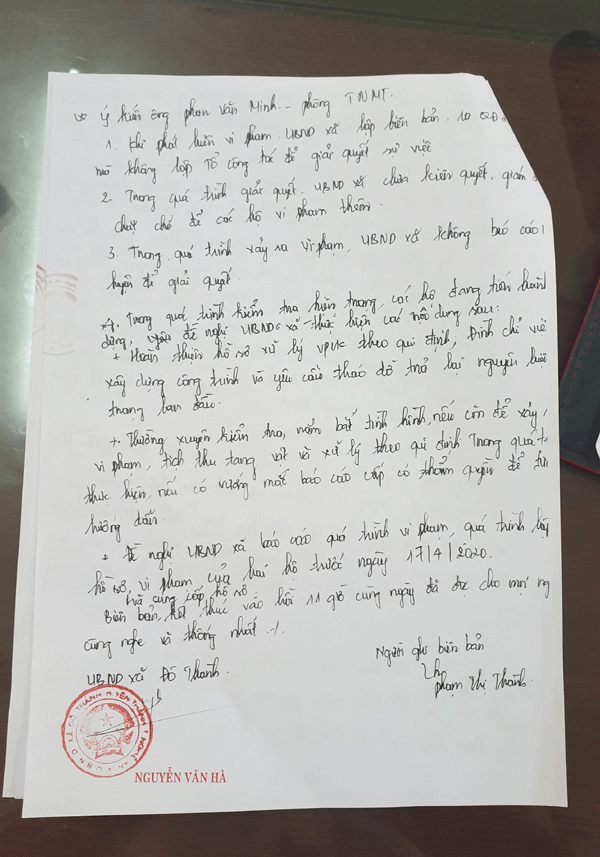 Ý kiến ông Phan Văn Minh - phòng TNMT.
1. Khi phát hiện vi phạm UBND xã lập biên bản, ra QĐ
mà không lập Tổ công tác để giải quyết sự việc.
2. Trong quá trình giải quyết. UBND xã chưa kiên quyết, giám
chặt chẽ để các hộ vi phạm thêm.
3. Trong quá trình xảy ra vi phạm, UBND xã không báo cáo
huyện để giải quyết.
4. Trong quá trình kiểm tra hiện trạng, các hộ đang tiến hành
dựng, đề nghị UBND xã thực hiện các nội dung sau:
+ Hoàn thiện hồ sơ xử lý VPHC theo qui định, Đình chỉ việc
xây dựng công trình và yêu cầu tháo dỡ trả lại nguyên hiện
trạng ban đầu.
+ Thường xuyên kiểm tra, nắm bắt tình hình, nếu còn để xảy
vi phạm, tịch thu tang vật và xử lý theo qui định Trong quá
thực hiện, nếu có vướng mắc báo cáo cấp có thẩm quyền để
hướng dẫn.
+ Đề nghị UBND xã báo cáo quá trình vi phạm, quá trình lập
hồ sơ, vi phạm của hai hộ trước ngày 17/4/2020.
và cung cấp hồ sơ
Biên bản kết thúc vào hồi 11 giờ cùng ngày đã đọc cho mọi ng
cùng nghe và thống nhất ./.
UBND xã Đô Thành.
Người ghi biên bản
Phạm Thị Thanh.
U.B.N.D XÃ ĐÔ THÀNH H.YÊN THÀNH T.NGHỆ AN
NGUYỄN VĂN HÀ